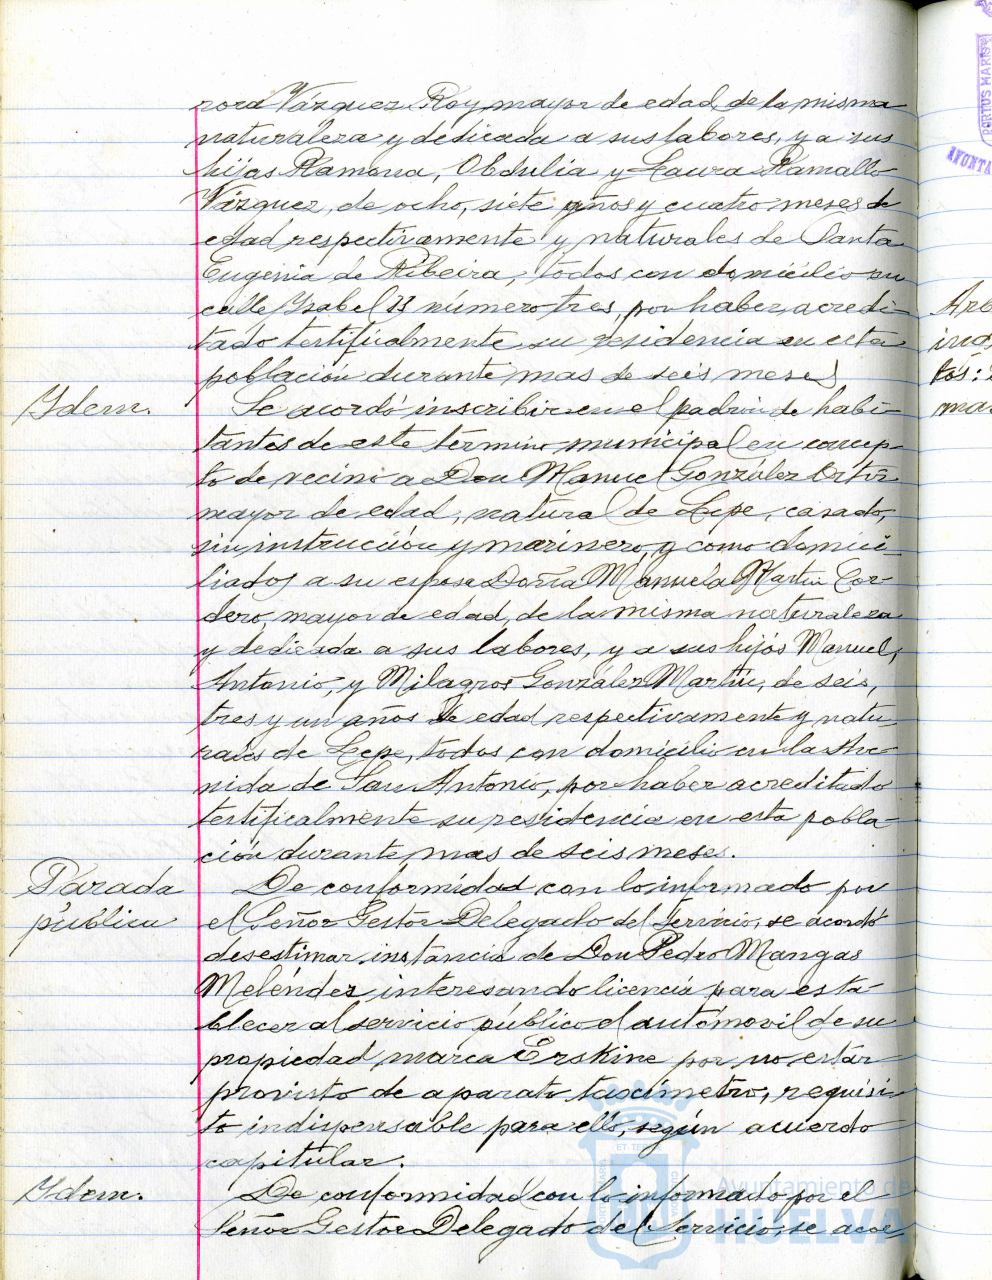 rora Vázquez Roy, mayor de edad, de la misma
naturaleza y dedicada a sus labores, y a sus
hijas Ramona, Obdulia y Laura Ramallo
Vázquez, de ocho, siete años y cuatro meses de
edad respectivamente y naturales de Santa
Eugenia de Ribeira, todos con domicilio en
calle Ysabel II número tres, por haber acredi-
tado testificalmente su residencia en esta
población durante mas de seis meses
Ydem.
Se acordó inscribir en el padrón de habi-
tantes de este término municipal en concep-
to de vecino a Don Manuel González Ortiz
mayor de edad, natural de Lepe, casado,
sin instrucción y marinero, y como domici-
liados a su esposa Doña Manuela Martin Cor-
dero, mayor de edad, de la misma naturaleza
y dedicada a sus labores, y a sus hijos Manuel,
Antonio, y Milagros González Martín, de seis,
tres y un años de edad respectivamente y natu-
rales de Lepe, todos con domicilio en la Ave-
nida de San Antonio, por haber acreditado
testificalmente su residencia en esta pobla-
ción durante mas de seis meses.
Parada
pública
De conformidad con lo informado por
el Señor Gestor Delegado del servicio, se acordó
desestimar instancia de Don Pedro Mangas
Meléndez interesando licencia para esta-
blecer al servicio público el automovil de su
propiedad marca Erskine por no estar
provisto de aparato taxímetro, requisi-
to indispensable para ello, según acuerdo
capitular.
Ydem.
De conformidad con lo informado por el
Señor Gestor Delegado del Servicio, se acor
ET TERRAE
Ayuntamiento de
HUELVA
PORTUS MARIS